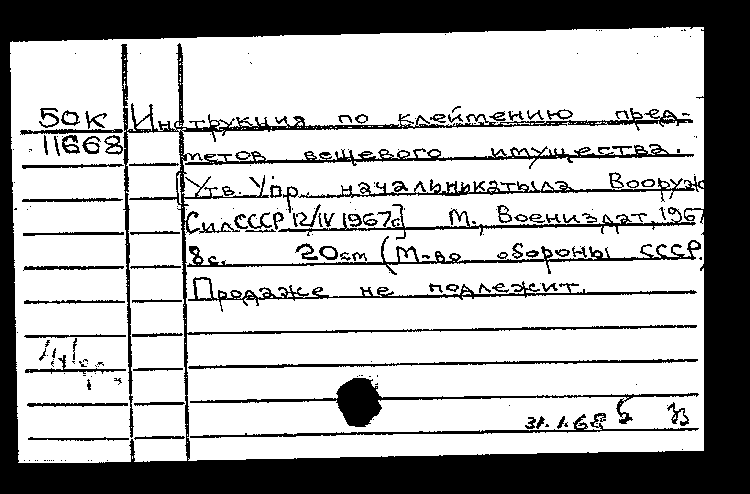 50К Инструкция по клеймению пред-
11668
метов вещевого имущества.
[Утв. Упр. начальникатыла Вооруж
Сил СССР 12/IV 1967г] М., Воениздат, 1967
8с. 20см (М-во обороны СССР)
Продаже не подлежит.
31.1.68